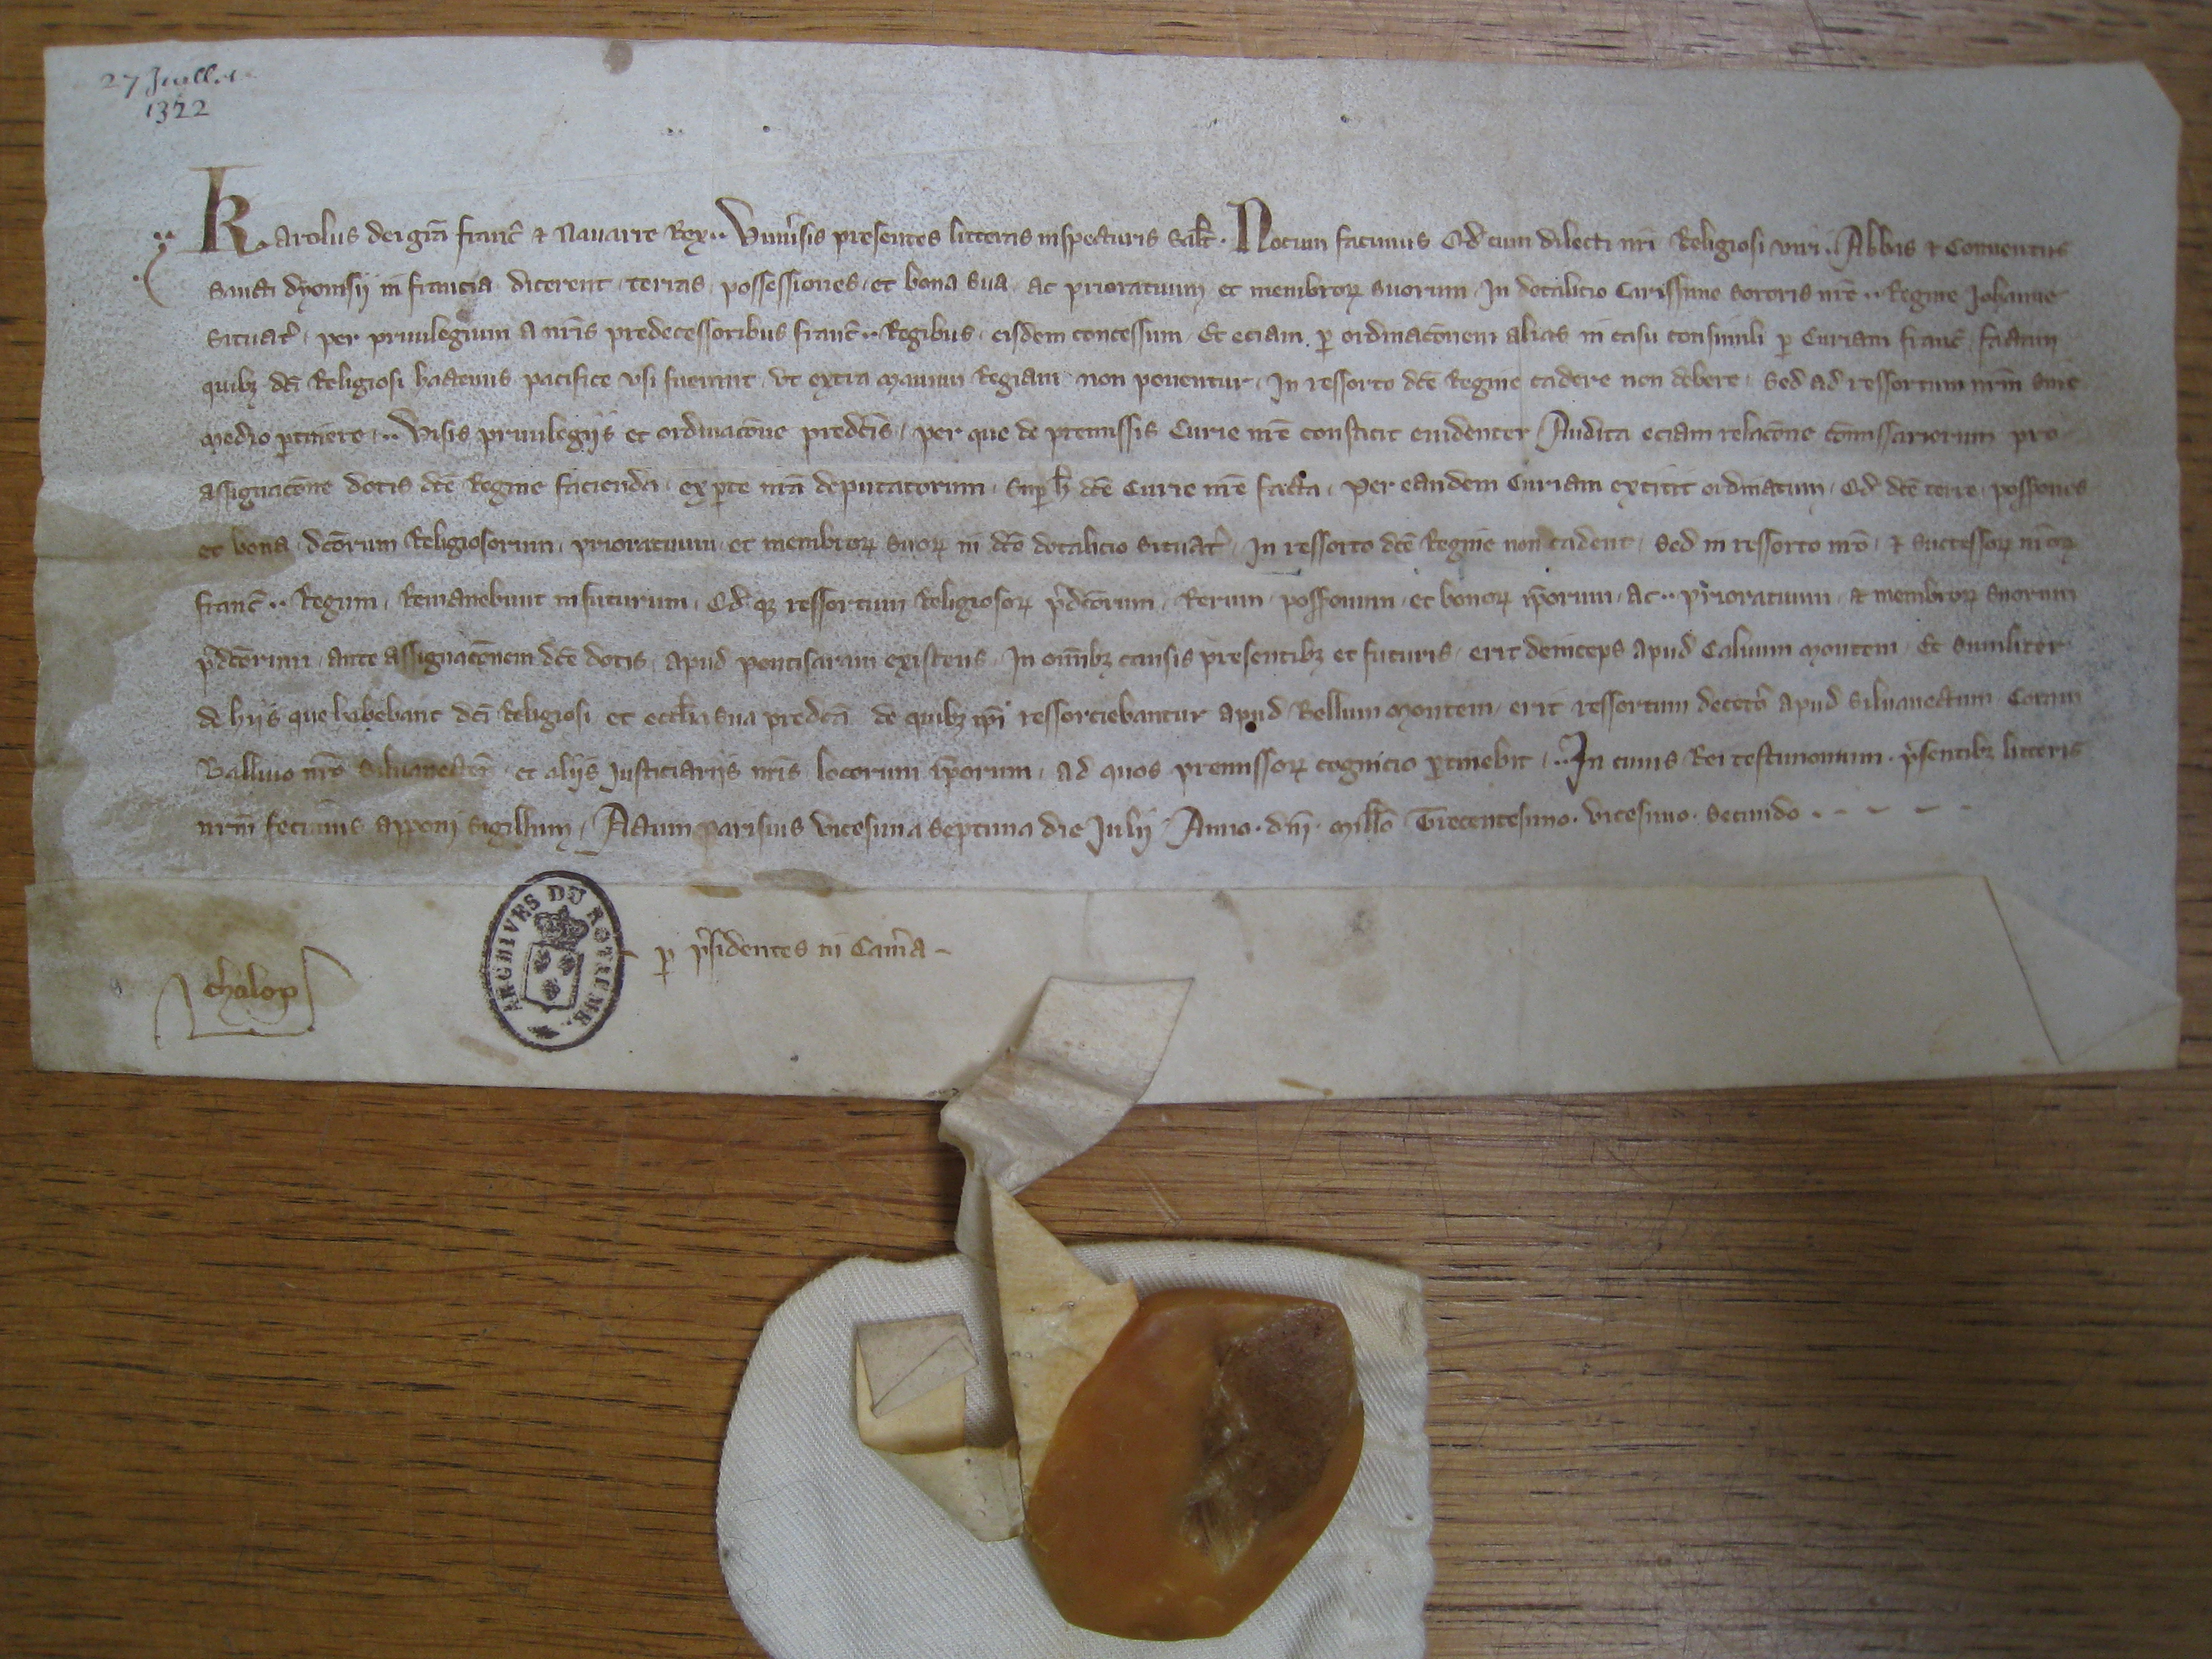 27 Juillet
1322
Karolus dei gr̃a franc̃ & Nauarre Rex·· Vniuersis presentes litteras inspecturis Sal̃t· Notum facimus Qd̃ cum dilecti nr̃i Religiosi viri·· Abbas & Conuentus
Sancti dyonisij in francia dicerent terras possessiones et bona sua ac prioratuum et membroꝝ suorum In dotalicio Carissime Sororis nr̃e·· Regine Johanne
Situat̃ per priuilegium a nr̃is predecessoribus franc̃·· Regibus eisdem concessum Et eciam ꝑ ordinac̃onem alias in casu consimili ꝑ Curiam franc̃ factam
quibꝫ dc̃i Religiosi hactenus pacifice vsi fuerant vt extra manum Regiam non ponentur In ressorto dc̃e Regine cadere non debere Sed ad ressortum nr̃m sine
medio ꝑtinere·· Visis priuilegijs et ordinac̃one predc̃is per que de premissis Curie nr̃e constitit euidenter Audita eciam relac̃one com̃issariorum pro
assignac̃one dotis dc̃e Regine facienda ex ꝑte nr̃a deputatorum suꝑ h̃ dc̃e Curie nr̃e facta per eandem Curiam extitit ordinatum Qd̃ dc̃e terre possones
et bona dc̃orum Religiosorum prioratuum et membroꝝ suoꝝ in dc̃o dotalicio situat̃ In ressorto dc̃e Regine non cadent Sed in ressorto nr̃o & Successoꝝ nr̃oꝝ
franc̃·· Regum Remanebunt in futurum Qd̃ qꝫ ressortum Religiosoꝝ p̃dc̃orum Rerum possonum et bonoꝝ ip̃orum ac·· prioratuum & membroꝝ suorum
p̃dc̃orum ante assignac̃onem dc̃e dotis apud pontisaram existens In om̃ibꝫ causis presentibꝫ et futuris erit deinceps apud Caluum montem Et similiter
de hijs que habebant dc̃i Religiosi et eccl̃ia sua predc̃a de quibꝫ ip̃i ressorciebantur apud Bellum montem erit ressortum deceto apud Siluanectum Coram
Balliuo nr̃o Siluanecten̄ et alijs Justiciarijs nr̃is locorum ip̃orum ad quos premissoꝝ cognicio ꝑtinebit·· In cuius Rei testimonium p̃sentibꝫ litteris
nr̃m fecimus apponi Sigillum Actum Parisius vicesima septima die Julij Anno dn̄i mill̃o Trecentesimo vicesimo secundo
ꝑ p̃sidentes in Cam̃a
chalop
ARCHIVES DU ROYAUME